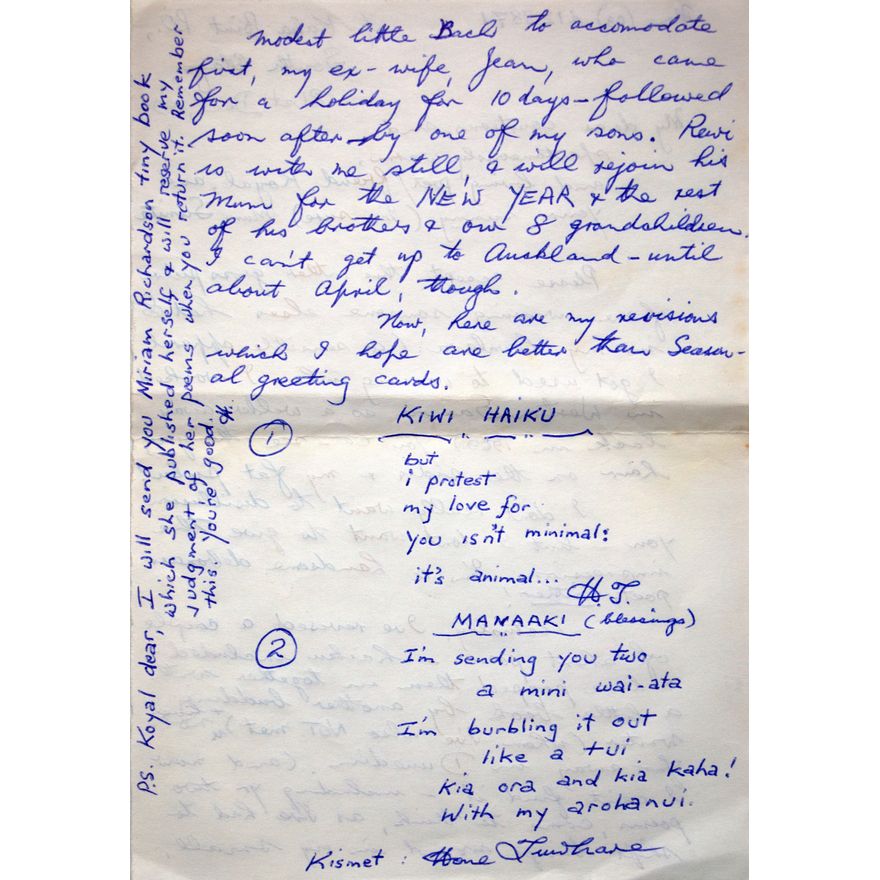 modest little Bach to accomodate
first, my ex-wife, Jean, who came
for a holiday for 10 days – followed
soon after by one of my sons. Rewi
is with me still, & will rejoin his
Mum for the NEW YEAR & the rest
of his brothers & our 8 grandchildren.
I can't get up to Auckland – until
about April, though.
Now, here are my revisions
which I hope are better than Season-
al greeting cards.
① KIWI HAIKU
but
i protest
my love for
you isn't minimal:
it's animal...
H.T.
② MANAAKI (blessings)
I'm sending you two
a mini wai-ata
I'm burbling it out
like a tui
Kia ora and kia kaha!
With my arohanui.
Kismet : Hone Tuwhare
P.S. Koyal dear, I will send you Miriam Richardson tiny book
which she published herself & will reserve my
judgment of her poems when you return it. Remember
this. You're good.
H.